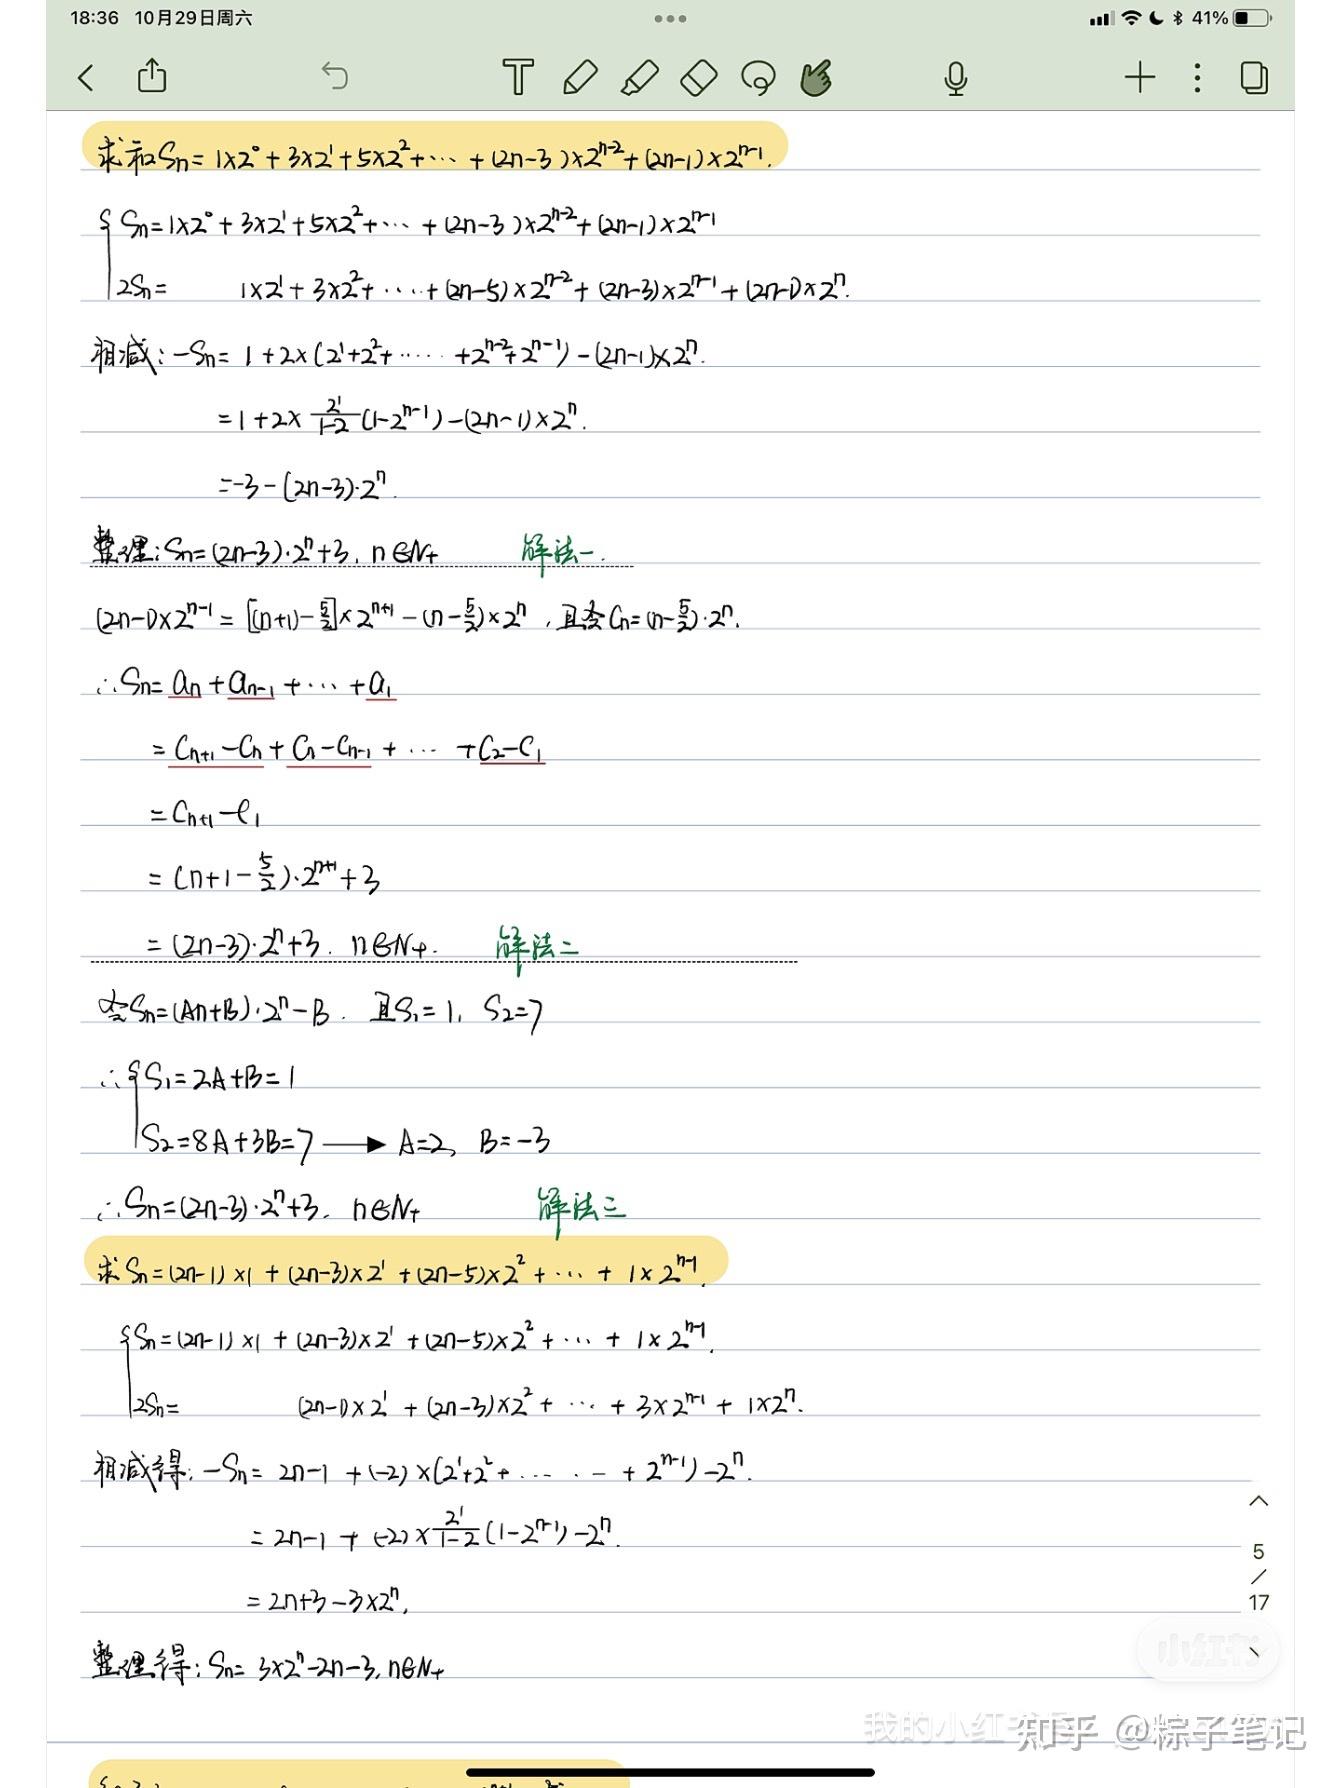 18:36 10月29日周六 41%
求和Sn=1×2⁰+3×2¹+5×2²+⋯+(2n-3)×2ⁿ⁻²+(2n-1)×2ⁿ⁻¹.
{Sn=1×2⁰+3×2¹+5×2²+⋯+(2n-3)×2ⁿ⁻²+(2n-1)×2ⁿ⁻¹
2Sn= 1×2¹+3×2²+⋯+(2n-5)×2ⁿ⁻²+(2n-3)×2ⁿ⁻¹+(2n-1)×2ⁿ.
相减:-Sn=1+2×(2¹+2²+⋯+2ⁿ⁻²+2ⁿ⁻¹)-(2n-1)×2ⁿ.
=1+2×2¹/(1-2)(1-2ⁿ⁻¹)-(2n-1)×2ⁿ.
=-3-(2n-3)·2ⁿ.
整理:Sn=(2n-3)·2ⁿ+3, n∈N₊ 解法一.
(2n-1)×2ⁿ⁻¹=[(n+1)-5/2]×2ⁿ⁺¹-(n-5/2)×2ⁿ,且令Cn=(n-5/2)·2ⁿ.
∴Sn=an+an-1+⋯+a1
=Cn+1-Cn+Cn-Cn-1+⋯+C2-C1
=Cn+1-C1
=(n+1-5/2)·2ⁿ⁺¹+3
=(2n-3)·2ⁿ+3. n∈N₊. 解法二
令Sn=(An+B)·2ⁿ-B. 且S1=1, S2=7
∴{S1=2A+B=1
S2=8A+3B=7→A=2, B=-3
∴Sn=(2n-3)·2ⁿ+3, n∈N₊ 解法三
求Sn=(2n-1)×1+(2n-3)×2¹+(2n-5)×2²+⋯+1×2ⁿ⁻¹.
{Sn=(2n-1)×1+(2n-3)×2¹+(2n-5)×2²+⋯+1×2ⁿ⁻¹.
2Sn= (2n-1)×2¹+(2n-3)×2²+⋯+3×2ⁿ⁻¹+1×2ⁿ.
相减得:-Sn=2n-1+(-2)×(2¹+2²+⋯+2ⁿ⁻¹)-2ⁿ.
=2n-1+(-2)×2¹/(1-2)(1-2ⁿ⁻¹)-2ⁿ.
=2n+3-3×2ⁿ.
整理得:Sn=3×2ⁿ-2n-3, n∈N₊
5
/
17
小红书
我的小红书
知乎 @粽子笔记